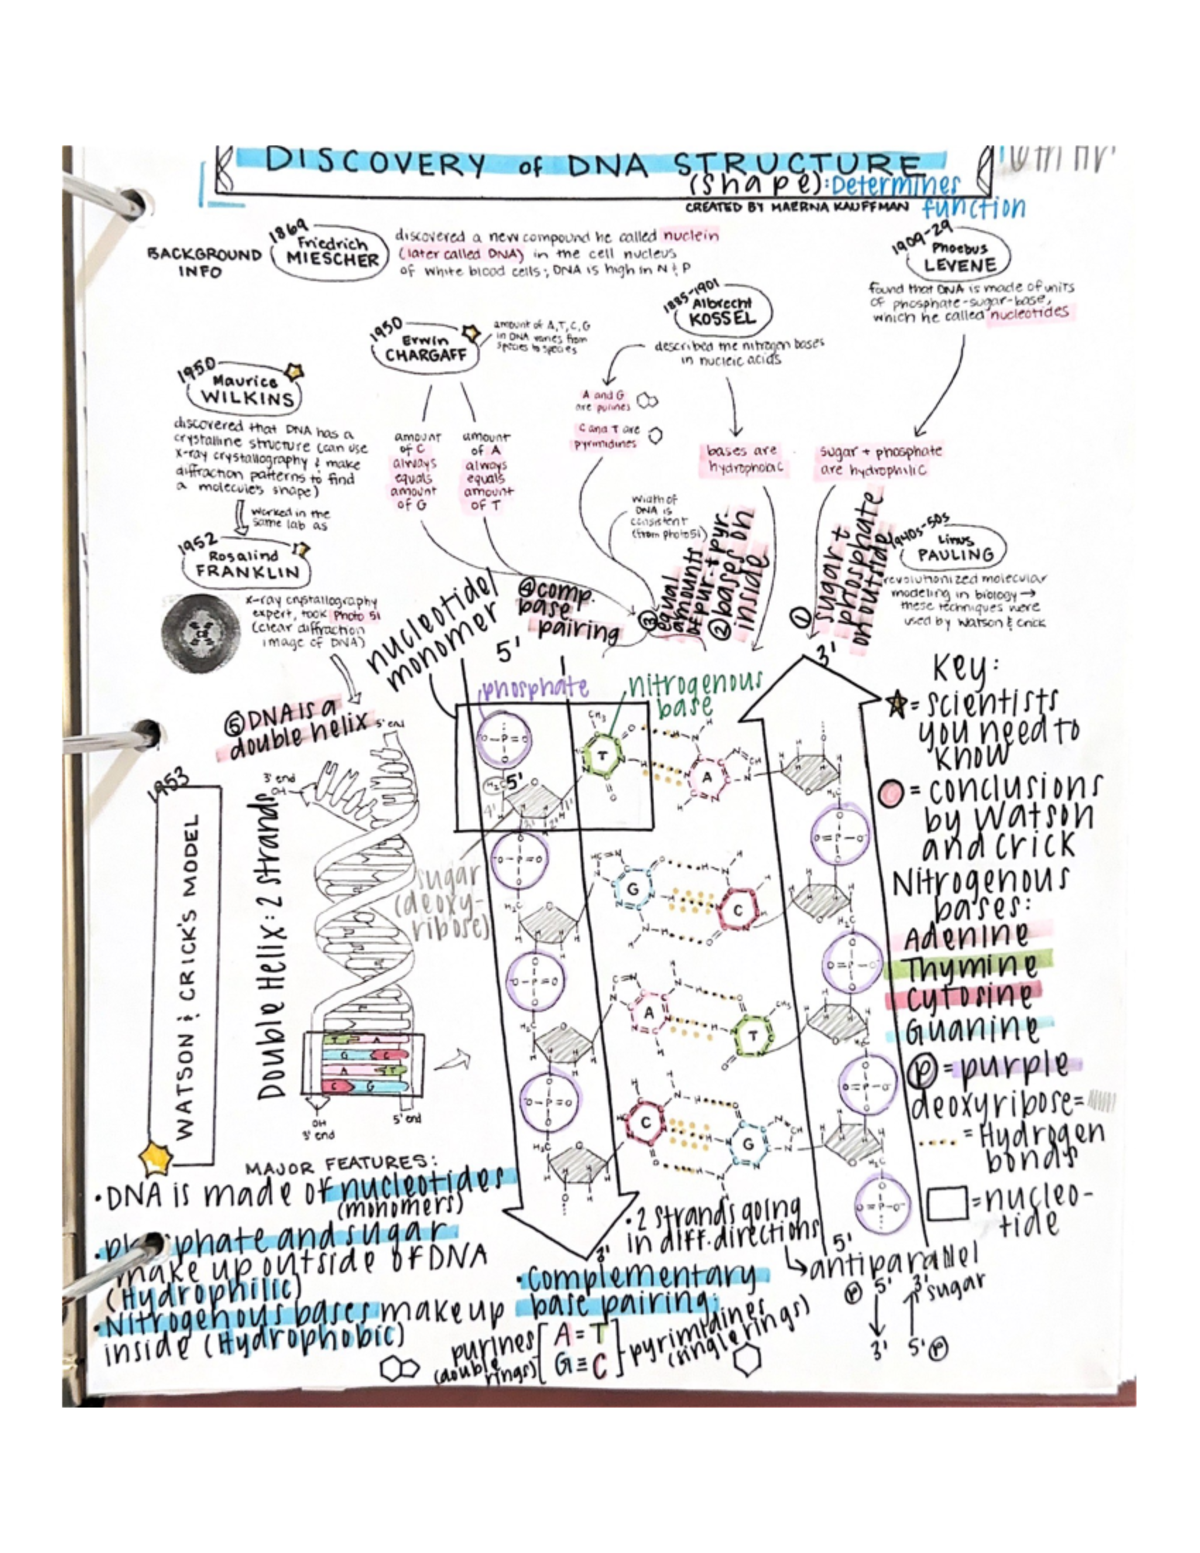 DISCOVERY of DNA STRUCTURE
(shape): Determines
function
CREATED BY MAERNA KAUFFMAN
BACKGROUND
INFO
1869
Friedrich
MIESCHER
discovered a new compound he called nuclein
(later called DNA) in the cell nucleus
of white blood cells; DNA is high in N & P
1909-29
Phoebus
LEVENE
found that DNA is made of units
of phosphate-sugar-base,
which he called nucleotides
1885-1901
Albrecht
KOSSEL
described the nitrogen bases
in nucleic acids
A and G
are purines
C and T are
pyrimidines
bases are
hydrophobic
sugar + phosphate
are hydrophilic
1950
Erwin
CHARGAFF
amount of A,T,C,G
in DNA varies from
species to species
amount
of C
always
equals
amount
of G
amount
of A
always
equals
amount
of T
1950
Maurice
WILKINS
discovered that DNA has a
crystalline structure (can use
x-ray crystallography & make
diffraction patterns to find
a molecule's shape)
worked in the
same lab as
1952
Rosalind
FRANKLIN
x-ray crystallography
expert, took Photo 51
(clear diffraction
image of DNA)
width of
DNA is
consistent
(from photo 51)
1940s-50s
Linus
PAULING
revolutionized molecular
modeling in biology →
these techniques were
used by Watson & Crick
① sugar +
phosphate
on outside
② bases on
inside
③ equal
amounts
of pur. + pyr.
④ comp.
base
pairing
⑤ DNA is a
double helix
nucleotide/
monomer
5'
3'
phosphate
nitrogenous
base
5'
sugar
(deoxy-
ribose)
T
A
G
C
A
T
C
G
1953
WATSON & CRICK'S MODEL
Double Helix: 2 strands
5' end
3' end
OH
T A
G C
A T
C G
OH
3' end
5' end
Key:
= scientists
you need to
know
= conclusions
by Watson
and Crick
Nitrogenous
bases:
Adenine
Thymine
Cytosine
Guanine
P = purple
deoxyribose=
= Hydrogen
bonds
= nucleo-
tide
MAJOR FEATURES:
• DNA is made of nucleotides
(monomers)
• phosphate and sugar
make up outside of DNA
(Hydrophilic)
• Nitrogenous bases make up
inside (Hydrophobic)
3'
• 2 strands going
in diff. directions
5'
antiparallel
P 5' 3' sugar
3' 5' P
• Complementary
base pairing:
purines
(double
rings)
A = T
G ≡ C
pyrimidines
(single rings)